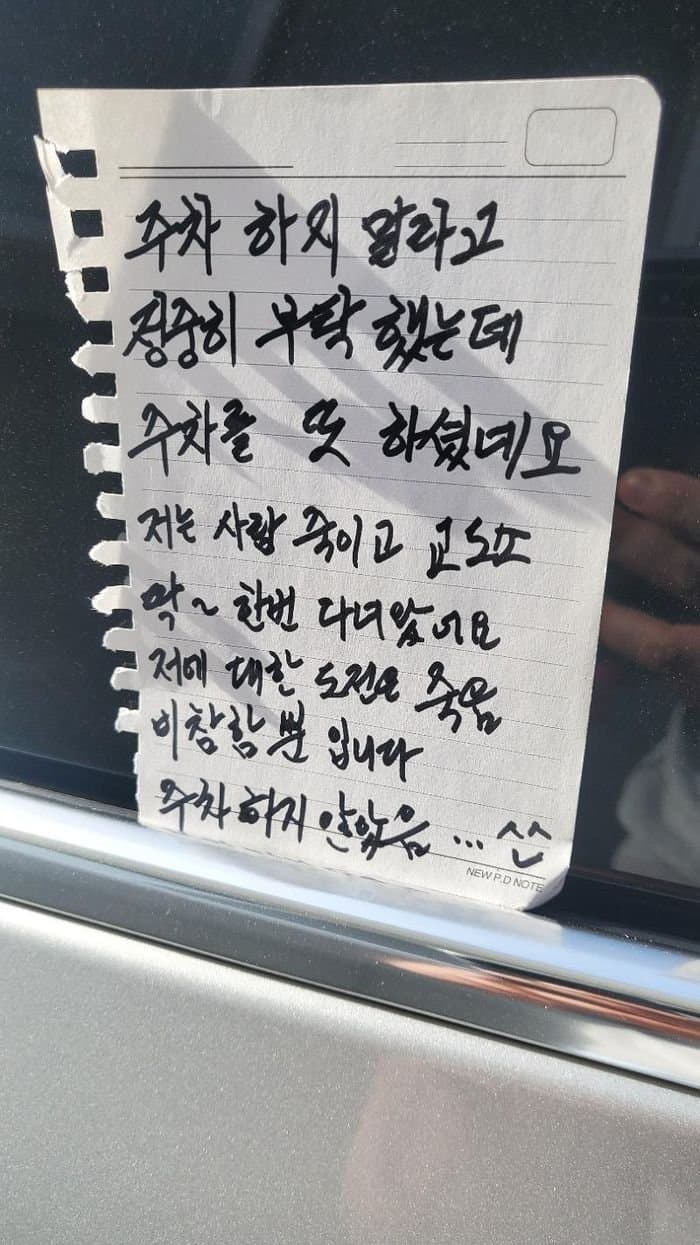 주차 하지 말라고
정중히 부탁 했는데
주차를 또 하셨네요
저는 사람 죽이고 교도소
막~ 한번 다녀왔어요
저에 대한 도전은 죽음
비참함 뿐 입니다
주차 하지 안았음 ... ^^
NEW P.D NOTE